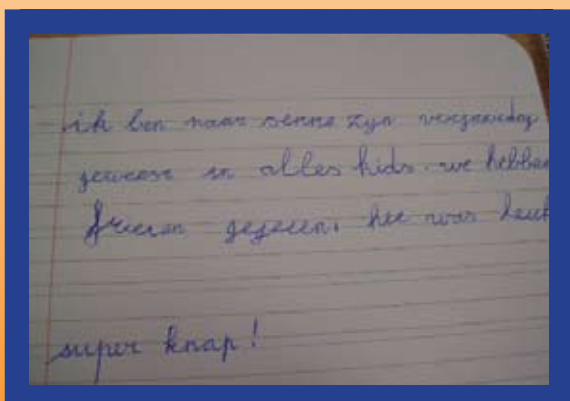 ik ben naar senne zyn verjaardag
geweest in alles kids. we hebben
frieten gegeten. het was leuk
super knap!